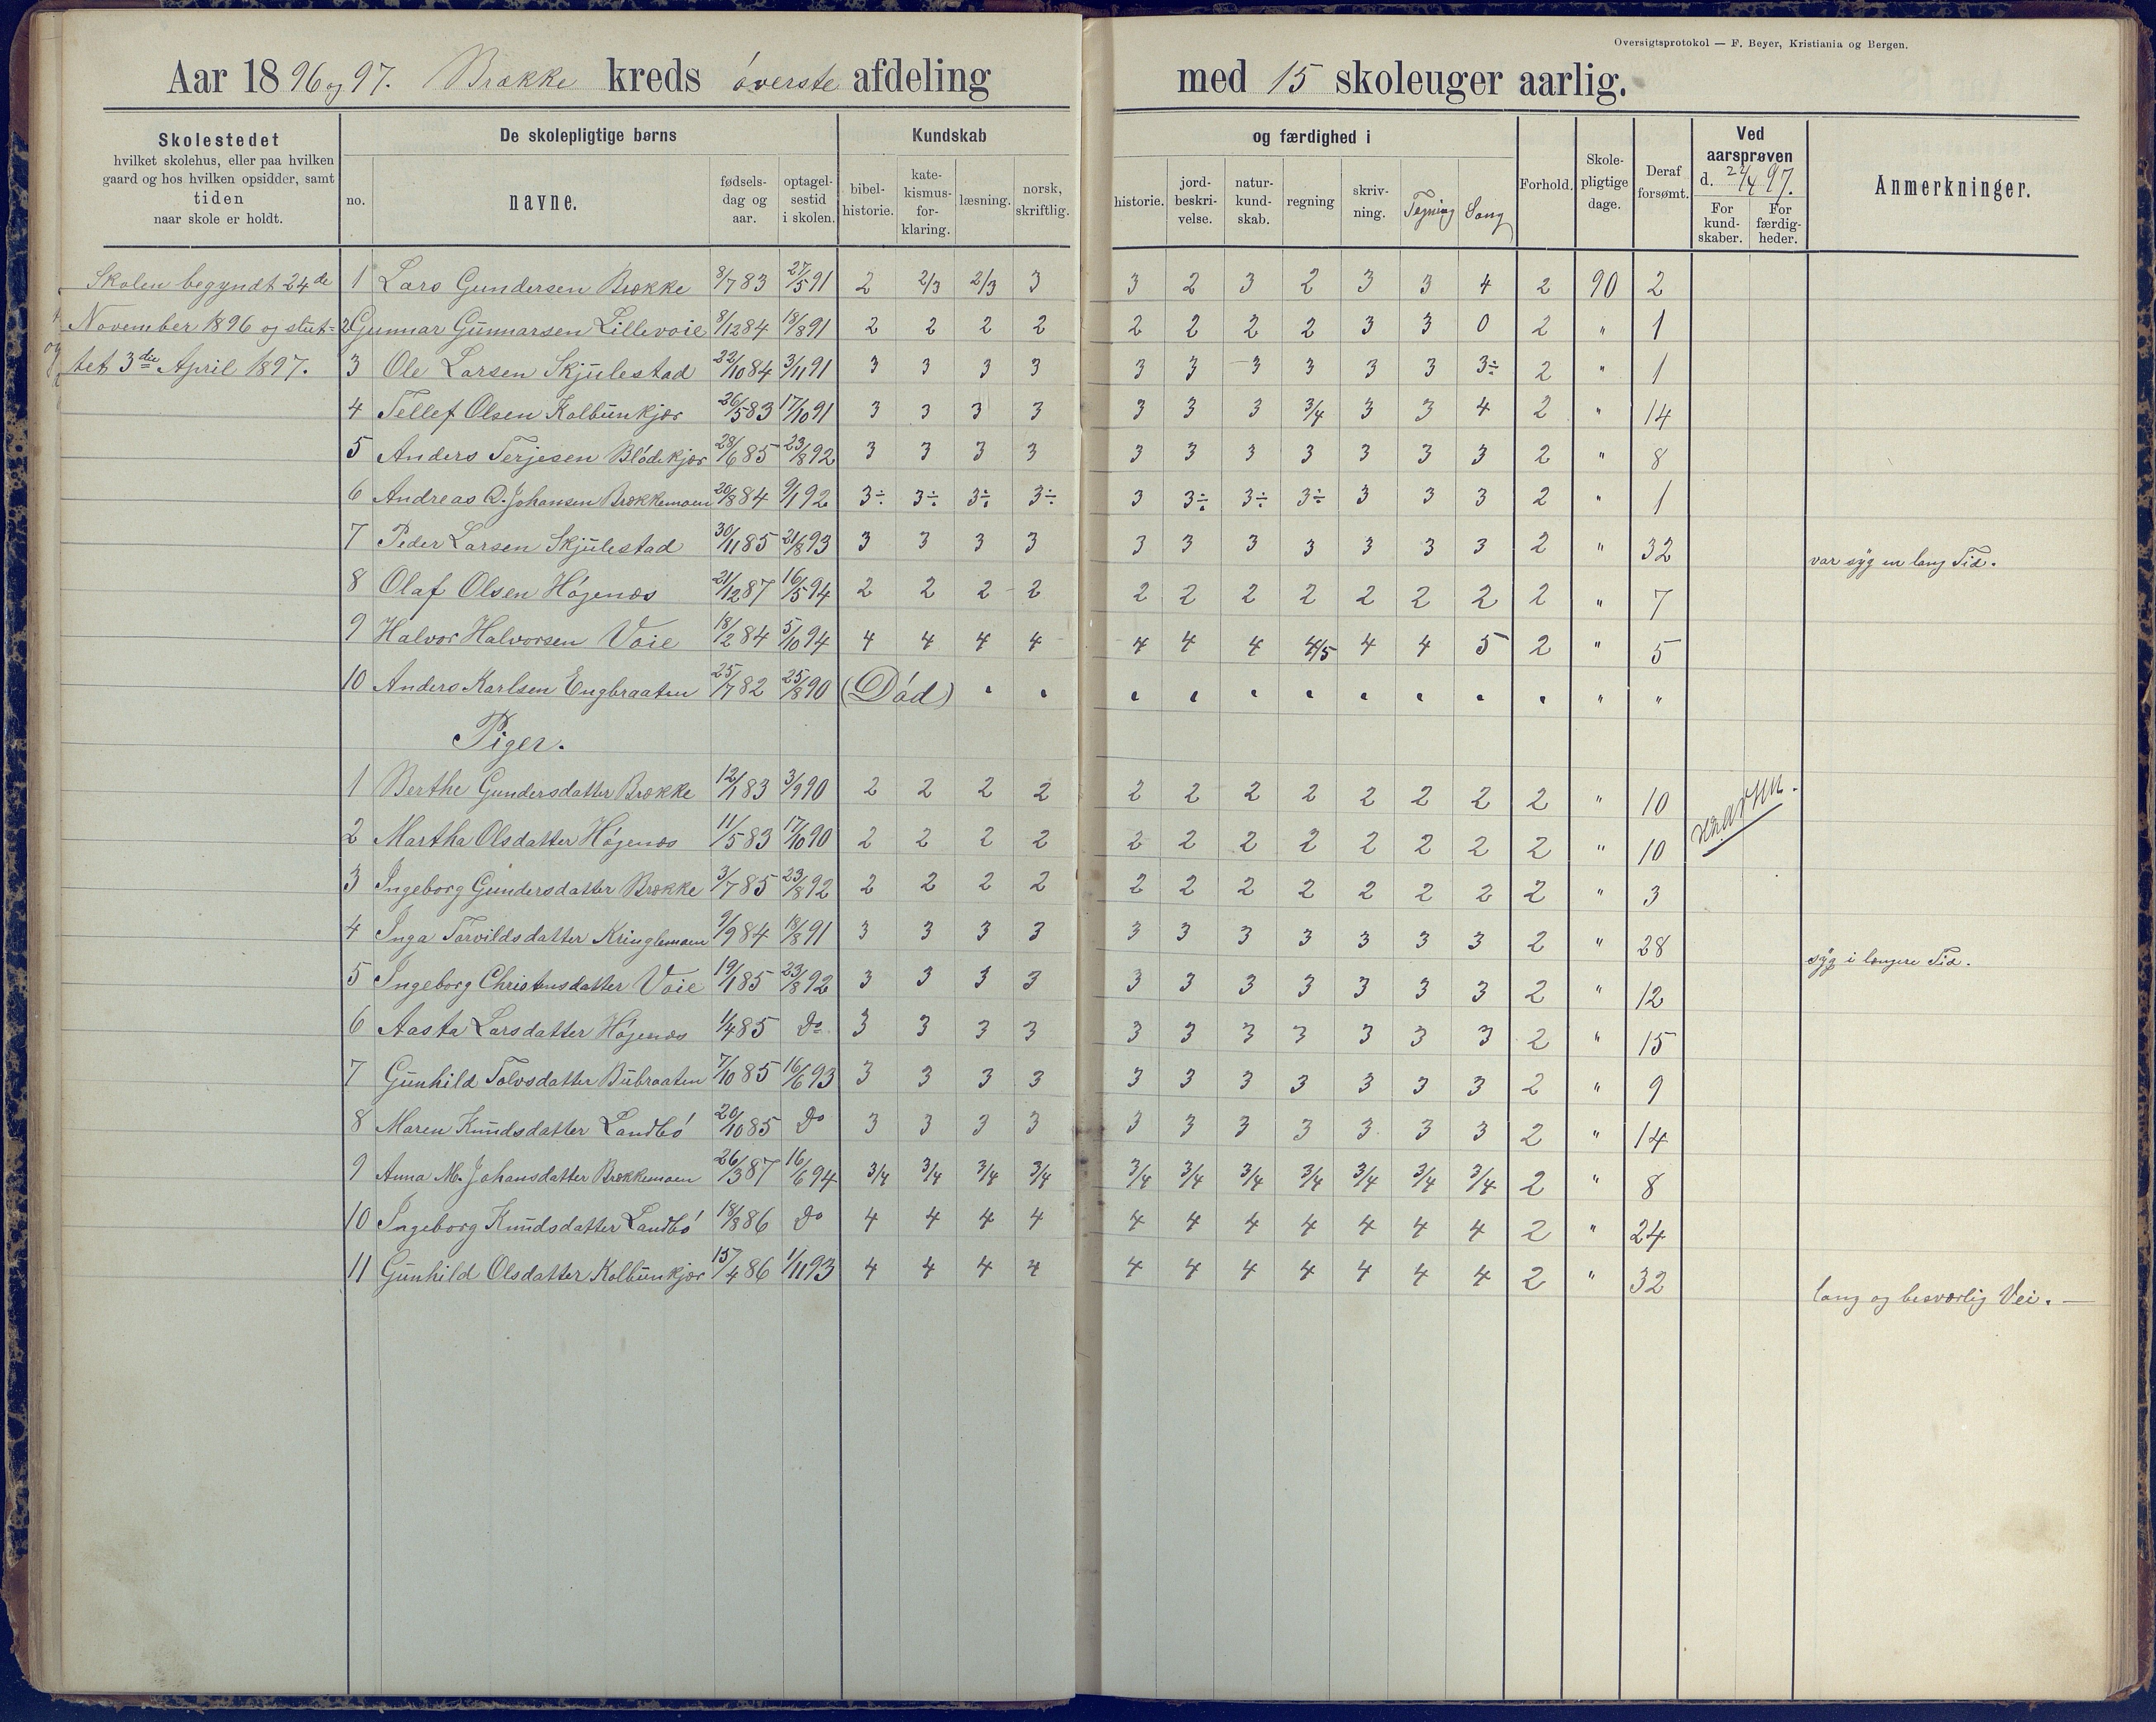 Oversigtsprotokol — F. Beyer, Kristiania og Bergen.
Aar 1896 og 97. Brække kreds øverste afdeling med 15 skoleuger aarlig.
Skolestedet hvilket skolehus, eller paa hvilken gaard og hos hvilken opsidder, samt tiden naar skole er holdt.
De skolepligtige børns
no. navne. fødsels-dag og aar. optagel-sestid i skolen.
Kundskab og færdighed i
bibel-historie. kate-kismus-for-klaring. læsning. norsk, skriftlig. historie. jord-beskri-velse. natur-kund-skab. regning skriv-ning. Tegning Sang
Forhold. Skole-pligtige dage. Deraf forsømt.
Ved aarsprøven d. 24/4 97.
For kund-skaber. For færdig-heder.
Anmerkninger.
Skolen begyndt 24de
November 1896 og slut=
tet 3die April 1897.
1 Lars Gundersen Brække 8/7 83 27/5 91 2 2/3 2/3 3 3 2 3 2 3 3 4 2 90 2
2 Gunnar Gunnarsen Lillevoie 8/12 84 18/8 91 2 2 2 2 2 2 2 2 3 3 0 2 " 1
3 Ole Larsen Skjulestad 22/10 84 3/11 91 3 3 3 3 3 3 3 3 3 3 3÷ 2 " 1
4 Tellef Olsen Kolbunkjær 26/5 83 17/10 91 3 3 3 3 3 3 3 3/4 3 3 4 2 " 14
5 Anders Terjesen Blødekjær 28/6 85 23/8 92 3 3 3 3 3 3 3 3 3 3 3 2 " 8
6 Andreas O. Johansen Brækkemoen 20/8 84 9/1 92 3÷ 3÷ 3÷ 3÷ 3 3÷ 3÷ 3÷ 3 3 3 2 " 1
7 Peder Larsen Skjulestad 30/11 85 21/8 93 3 3 3 3 3 3 3 3 3 3 3 2 " 32 var syg en lang Tid.
8 Olaf Olsen Høgenæs 21/12 87 16/5 94 2 2 2 2 2 2 2 2 2 2 2 2 " 7
9 Halvor Halvorsen Voie 18/2 84 5/10 94 4 4 4 4 4 4 4 4/5 4 4 5 2 " 5
10 Anders Karlsen Engbraaten 25/7 82 25/8 90 (Død) " " " " " " " " " " " "
Piger.
1 Berthe Gundersdatter Brække 12/1 83 3/9 90 2 2 2 2 2 2 2 2 2 2 2 2 " 10
2 Martha Olsdatter Høgenæs 11/5 83 17/10 90 2 2 2 2 2 2 2 2 2 2 2 2 " 10
3 Ingeborg Gundersdatter Brække 3/7 85 23/8 92 2 2 2 2 2 2 2 2 2 2 2 2 " 3
4 Inga Torvildsdatter Kringlemoen 9/9 84 18/8 91 3 3 3 3 3 3 3 3 3 3 3 2 " 28 syg i længere Tid.
5 Ingeborg Christensdatter Voie 19/1 85 23/8 92 3 3 3 3 3 3 3 3 3 3 3 2 " 12
6 Aasta Larsdatter Høgenæs 1/4 85 Do 3 3 3 3 3 3 3 3 3 3 3 2 " 15
7 Gunhild Tolvsdatter Bubraaten 7/10 85 16/6 93 3 3 3 3 3 3 3 3 3 3 3 2 " 9
8 Maren Knudsdatter Landbø 20/10 85 Do 3 3 3 3 3 3 3 3 3 3 3 2 " 14
9 Anna M. Johansdatter Brækkemoen 26/3 87 16/6 94 3/4 3/4 3/4 3/4 3/4 3/4 3/4 3/4 3/4 3/4 3/4 2 " 8
10 Ingeborg Knudsdatter Landbø 18/8 86 Do 4 4 4 4 4 4 4 4 4 4 4 2 " 24
11 Gunhild Olsdatter Kolbunkjær 15/4 86 1/11 93 4 4 4 4 4 4 4 4 4 4 4 2 " 32 lang og besværlig Vei. —